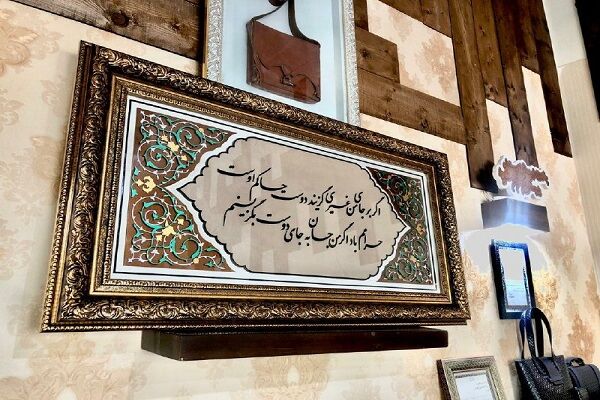 اگر بر جای من غیری گزیند دوست حاکم اوست
حرامم باد اگر من جان به جای دوست بگزینم